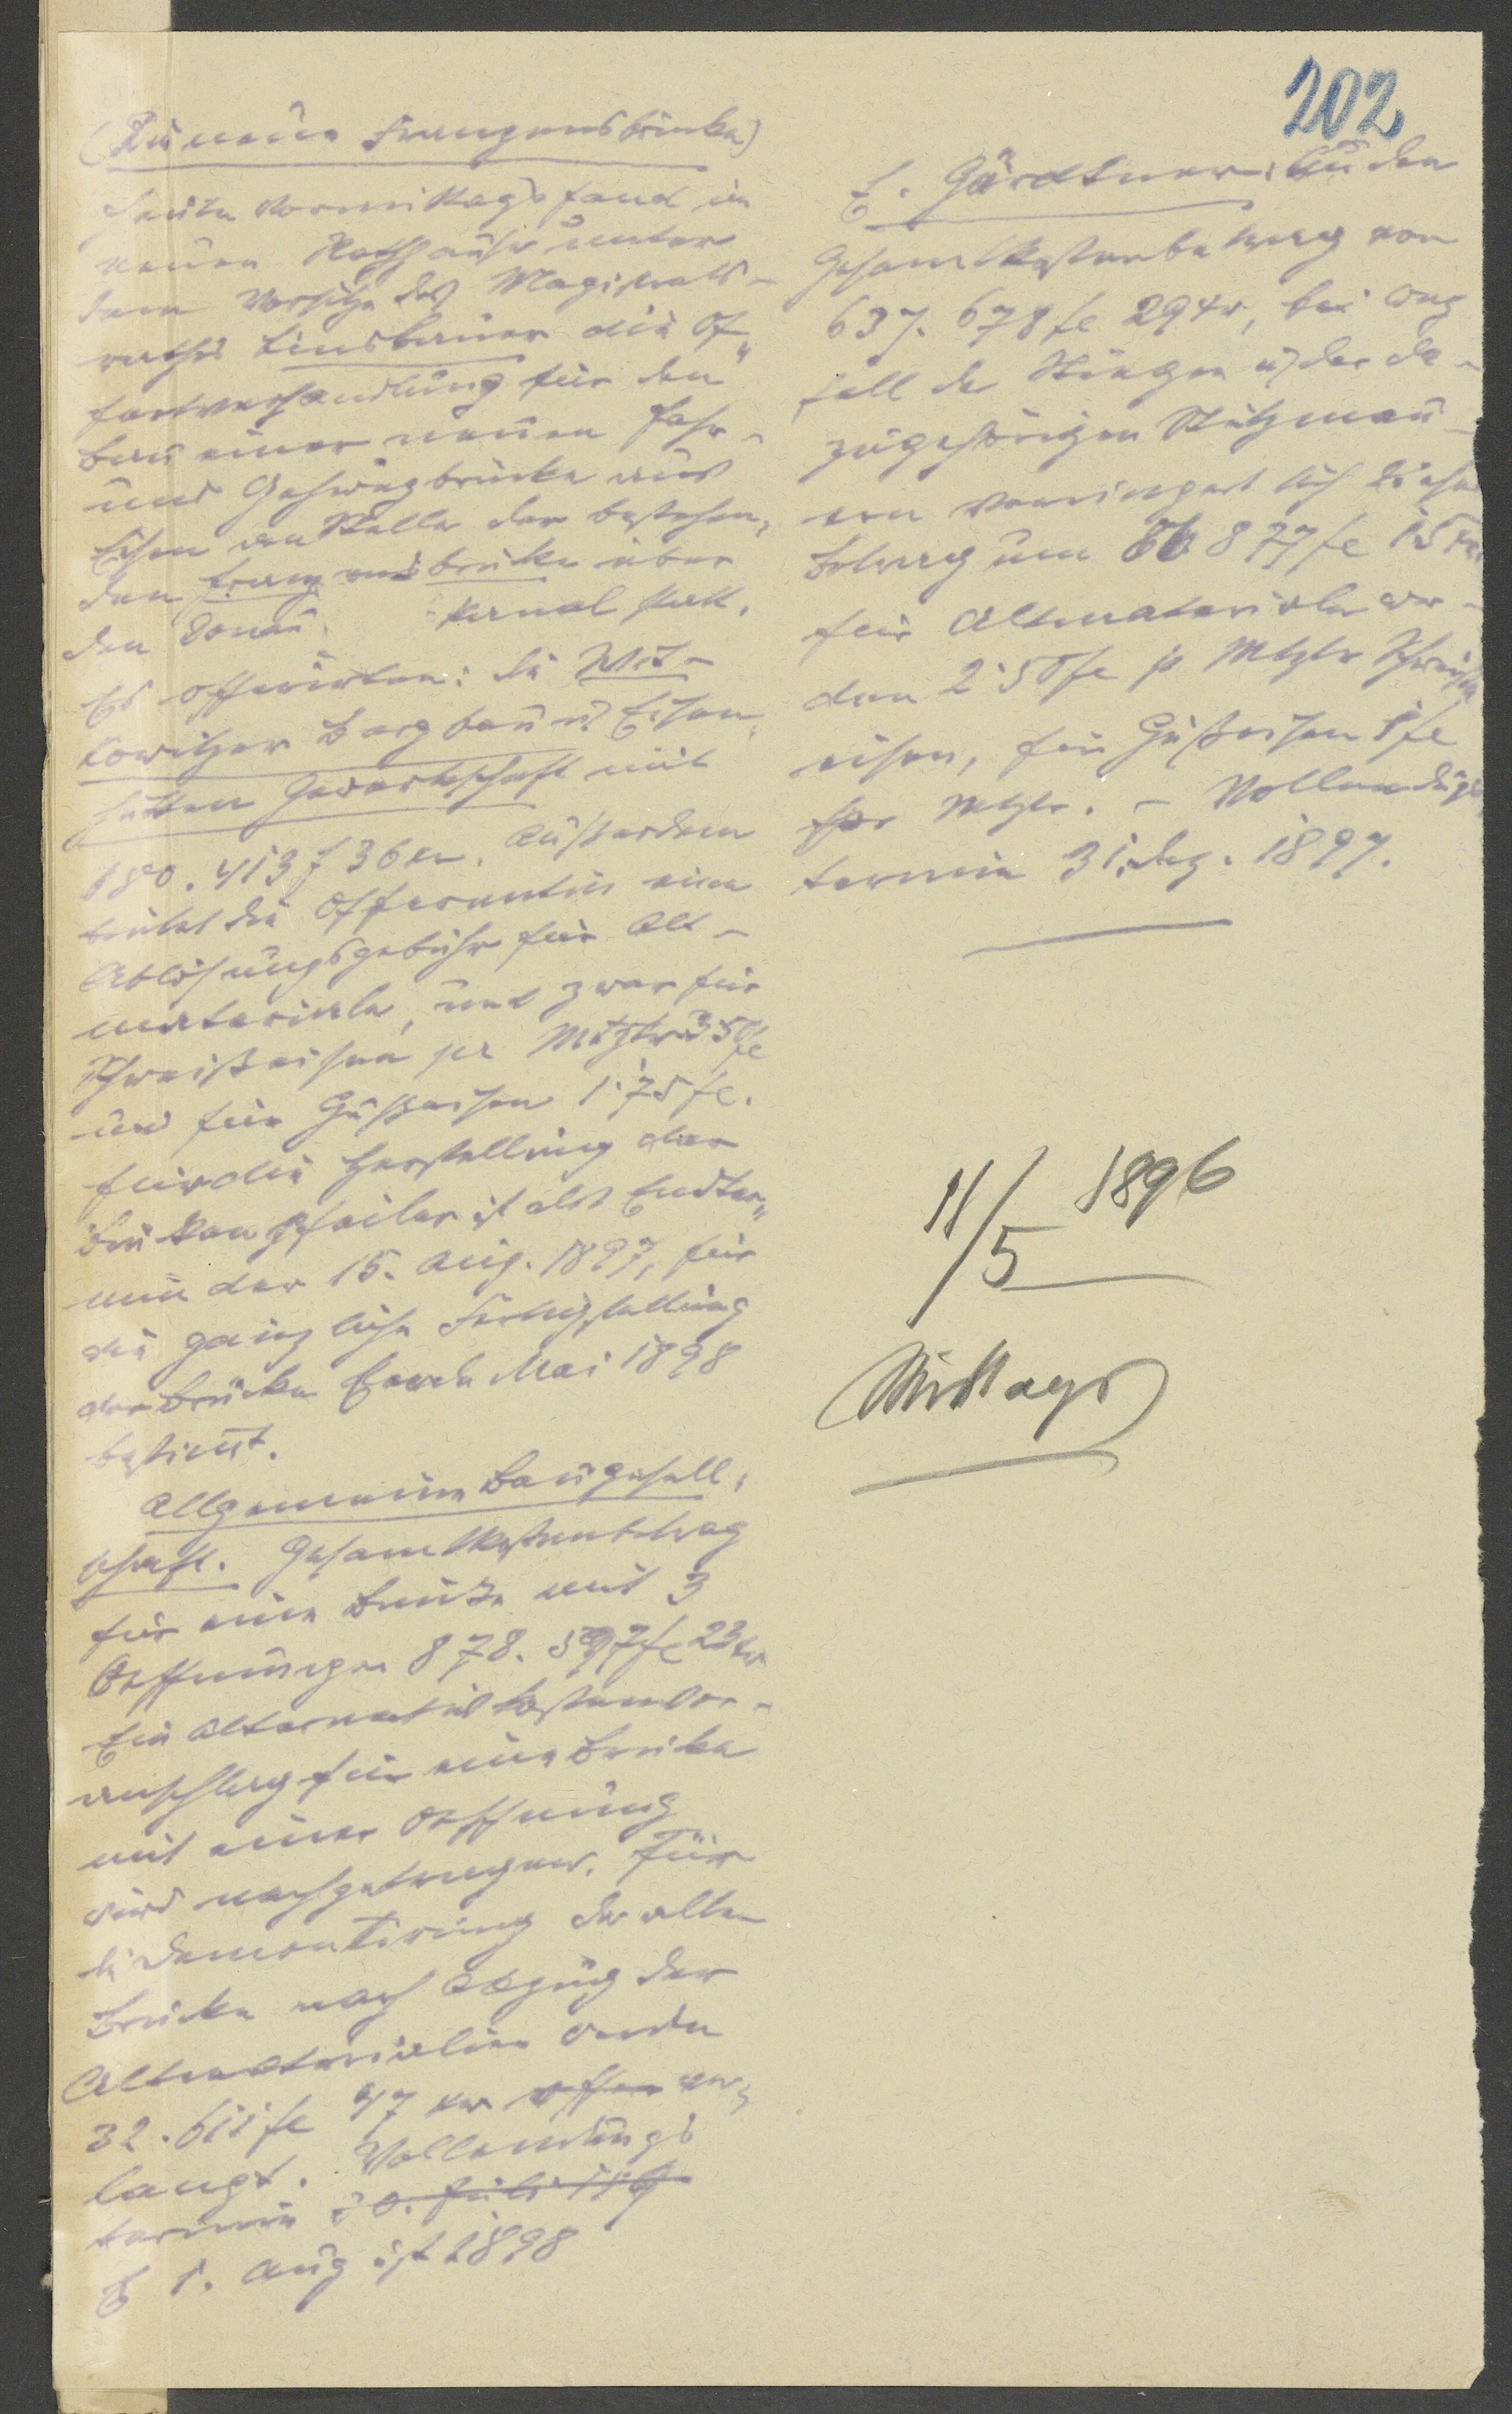 202
(Die neue Franzensbrücke)
Heute Vormittags fand im
neuen Rathhause unter
dem Vorsitze des Magistrats-
rathes Linsbauer die Of„
fertverhandlung für den
Bau einer neuen Fahr-
und Gehwegbrücke aus
Eisen an Stelle der bestehen„
den Franzensbrücke über
den Donau kanal statt.
Es offerirten: die Wit-
kowitzer Bergbau u. Eisen„
hütten Gewerkschaft mit
680.413 f 36 kr. Außerdem
bietet die Offerentin eine
Ablösungsgebühr für Alt-
materiale, und zwar für
Schweißeisen pr Mtztr 3 50 fl
und für Gußeisen 1·75 fl.
Für die Herstellung der
Brückenpfeiler ist als Endter„
min der 15. Aug. 1897, für
die gänzliche Fertigstellung
der Brücke Ende Mai 1898
bestimt.
Allgemeine Baugesell„
schaft. Gesamtkostenbetrag
für eine Brücke mit 3
Oeffnungen 878.597 fl 23 kr
Ein Alternativ Kostenvor-
anschlag für eine Brücke
mit einer Oeffnung
wird nachgetragen. Für
die Demontirung der alten
Brücke nach Abzug der
Altmaterialien werden
32.611 fl 47 kr offen ver„
langt. Vollendungs
termin 30. Juli 189
1. August 1898
E. Gärdtner: Für den
Gesamtkostenbetrag von
637.678 fl 29 kr, bei Weg
fall der Stiegen u. der da-
zugehörigen Stützmau-
ern verringert sich dieser
Betrag um 877 fl 15 kr.
für Altmateriale wer-
den 2·50 fl pr Mtztr Schweiß
eisen, für Gußeisen 1 fl
per Mtztr. – Vollendungs
termin 31. Dez. 1897.
11/5 1896
Mittags